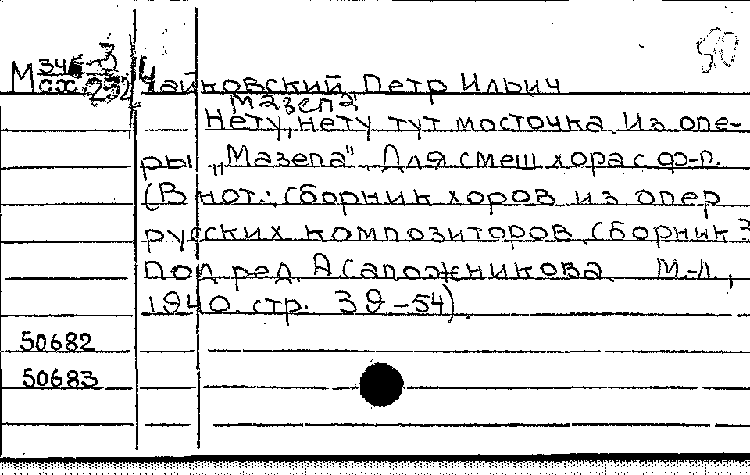 50
М 345-3 Чайковский, Петр Ильич
Мазепа
Нету, нету тут мосточка. Из опе-
ры „Мазепа". Для смеш. хора с ф-п.
(В нот.: Сборник хоров из опер
русских композиторов. Сборник 3
Под ред. А Сапожникова. М.-Л.,
1940. стр. 39-54).
50682
50683